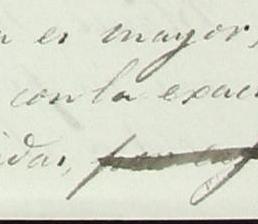 n es mayor,
con la exac
idas,